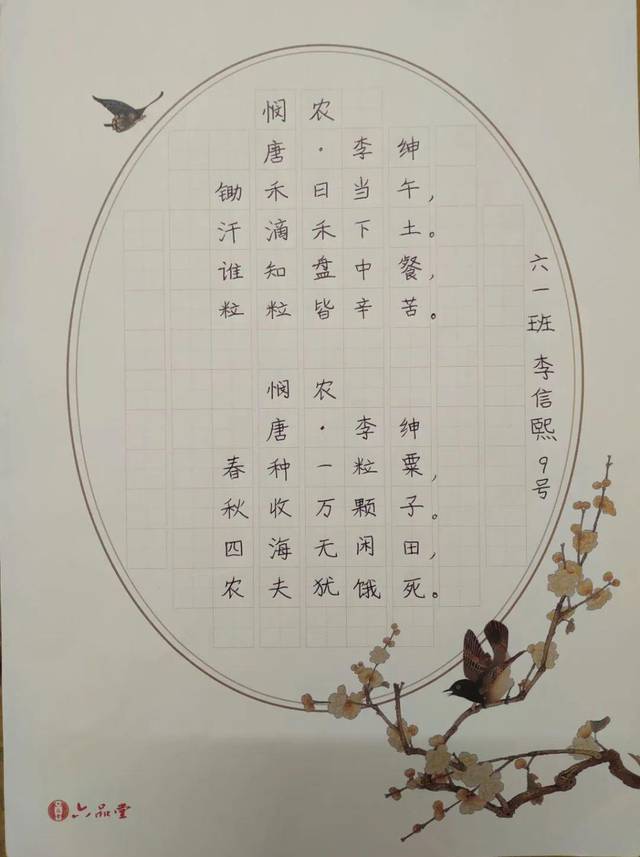 悯农
唐·李绅
锄禾日当午，
汗滴禾下土。
谁知盘中餐，
粒粒皆辛苦。
悯农
唐·李绅
春种一粒粟，
秋收万颗子。
四海无闲田，
农夫犹饿死。
六一班 李信熙 9号
六品堂